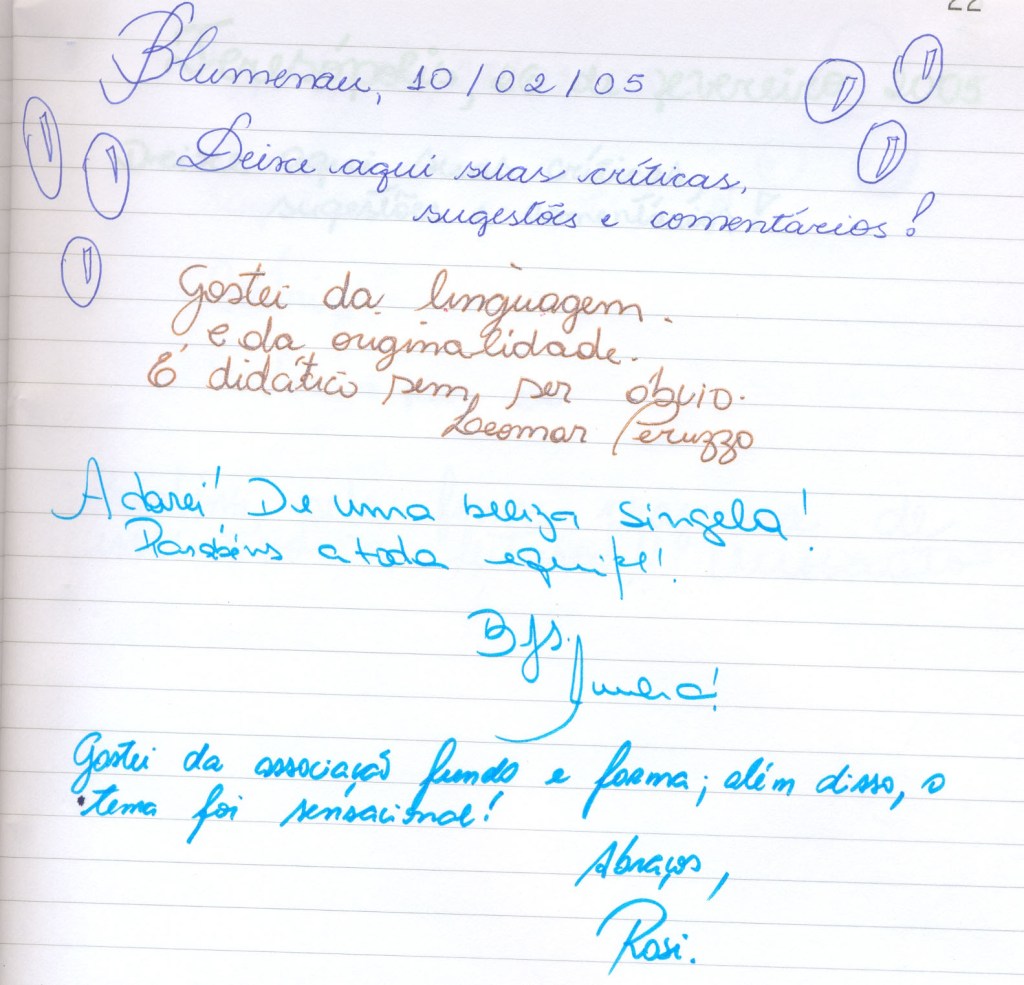 22
Blumenau, 10/02/05
Deixe aqui suas críticas,
sugestões e comentários!
Gostei da linguagem.
e da originalidade.
É didático sem ser óbvio.
Leomar Peruzzo
Adorei! De uma beleza singela!
Parabéns a toda equipe!
Bjs.
Gostei da associação fundo e forma; além disso, o
tema foi sensacional!
Abraços,
Rosi.